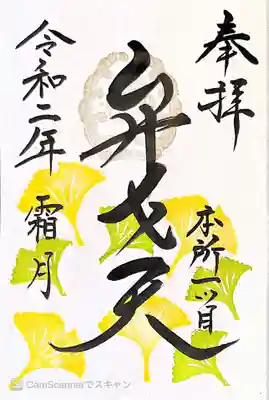 奉拝
本所一ツ目
弁才天
令和二年 霜月
CamScannerでスキャン